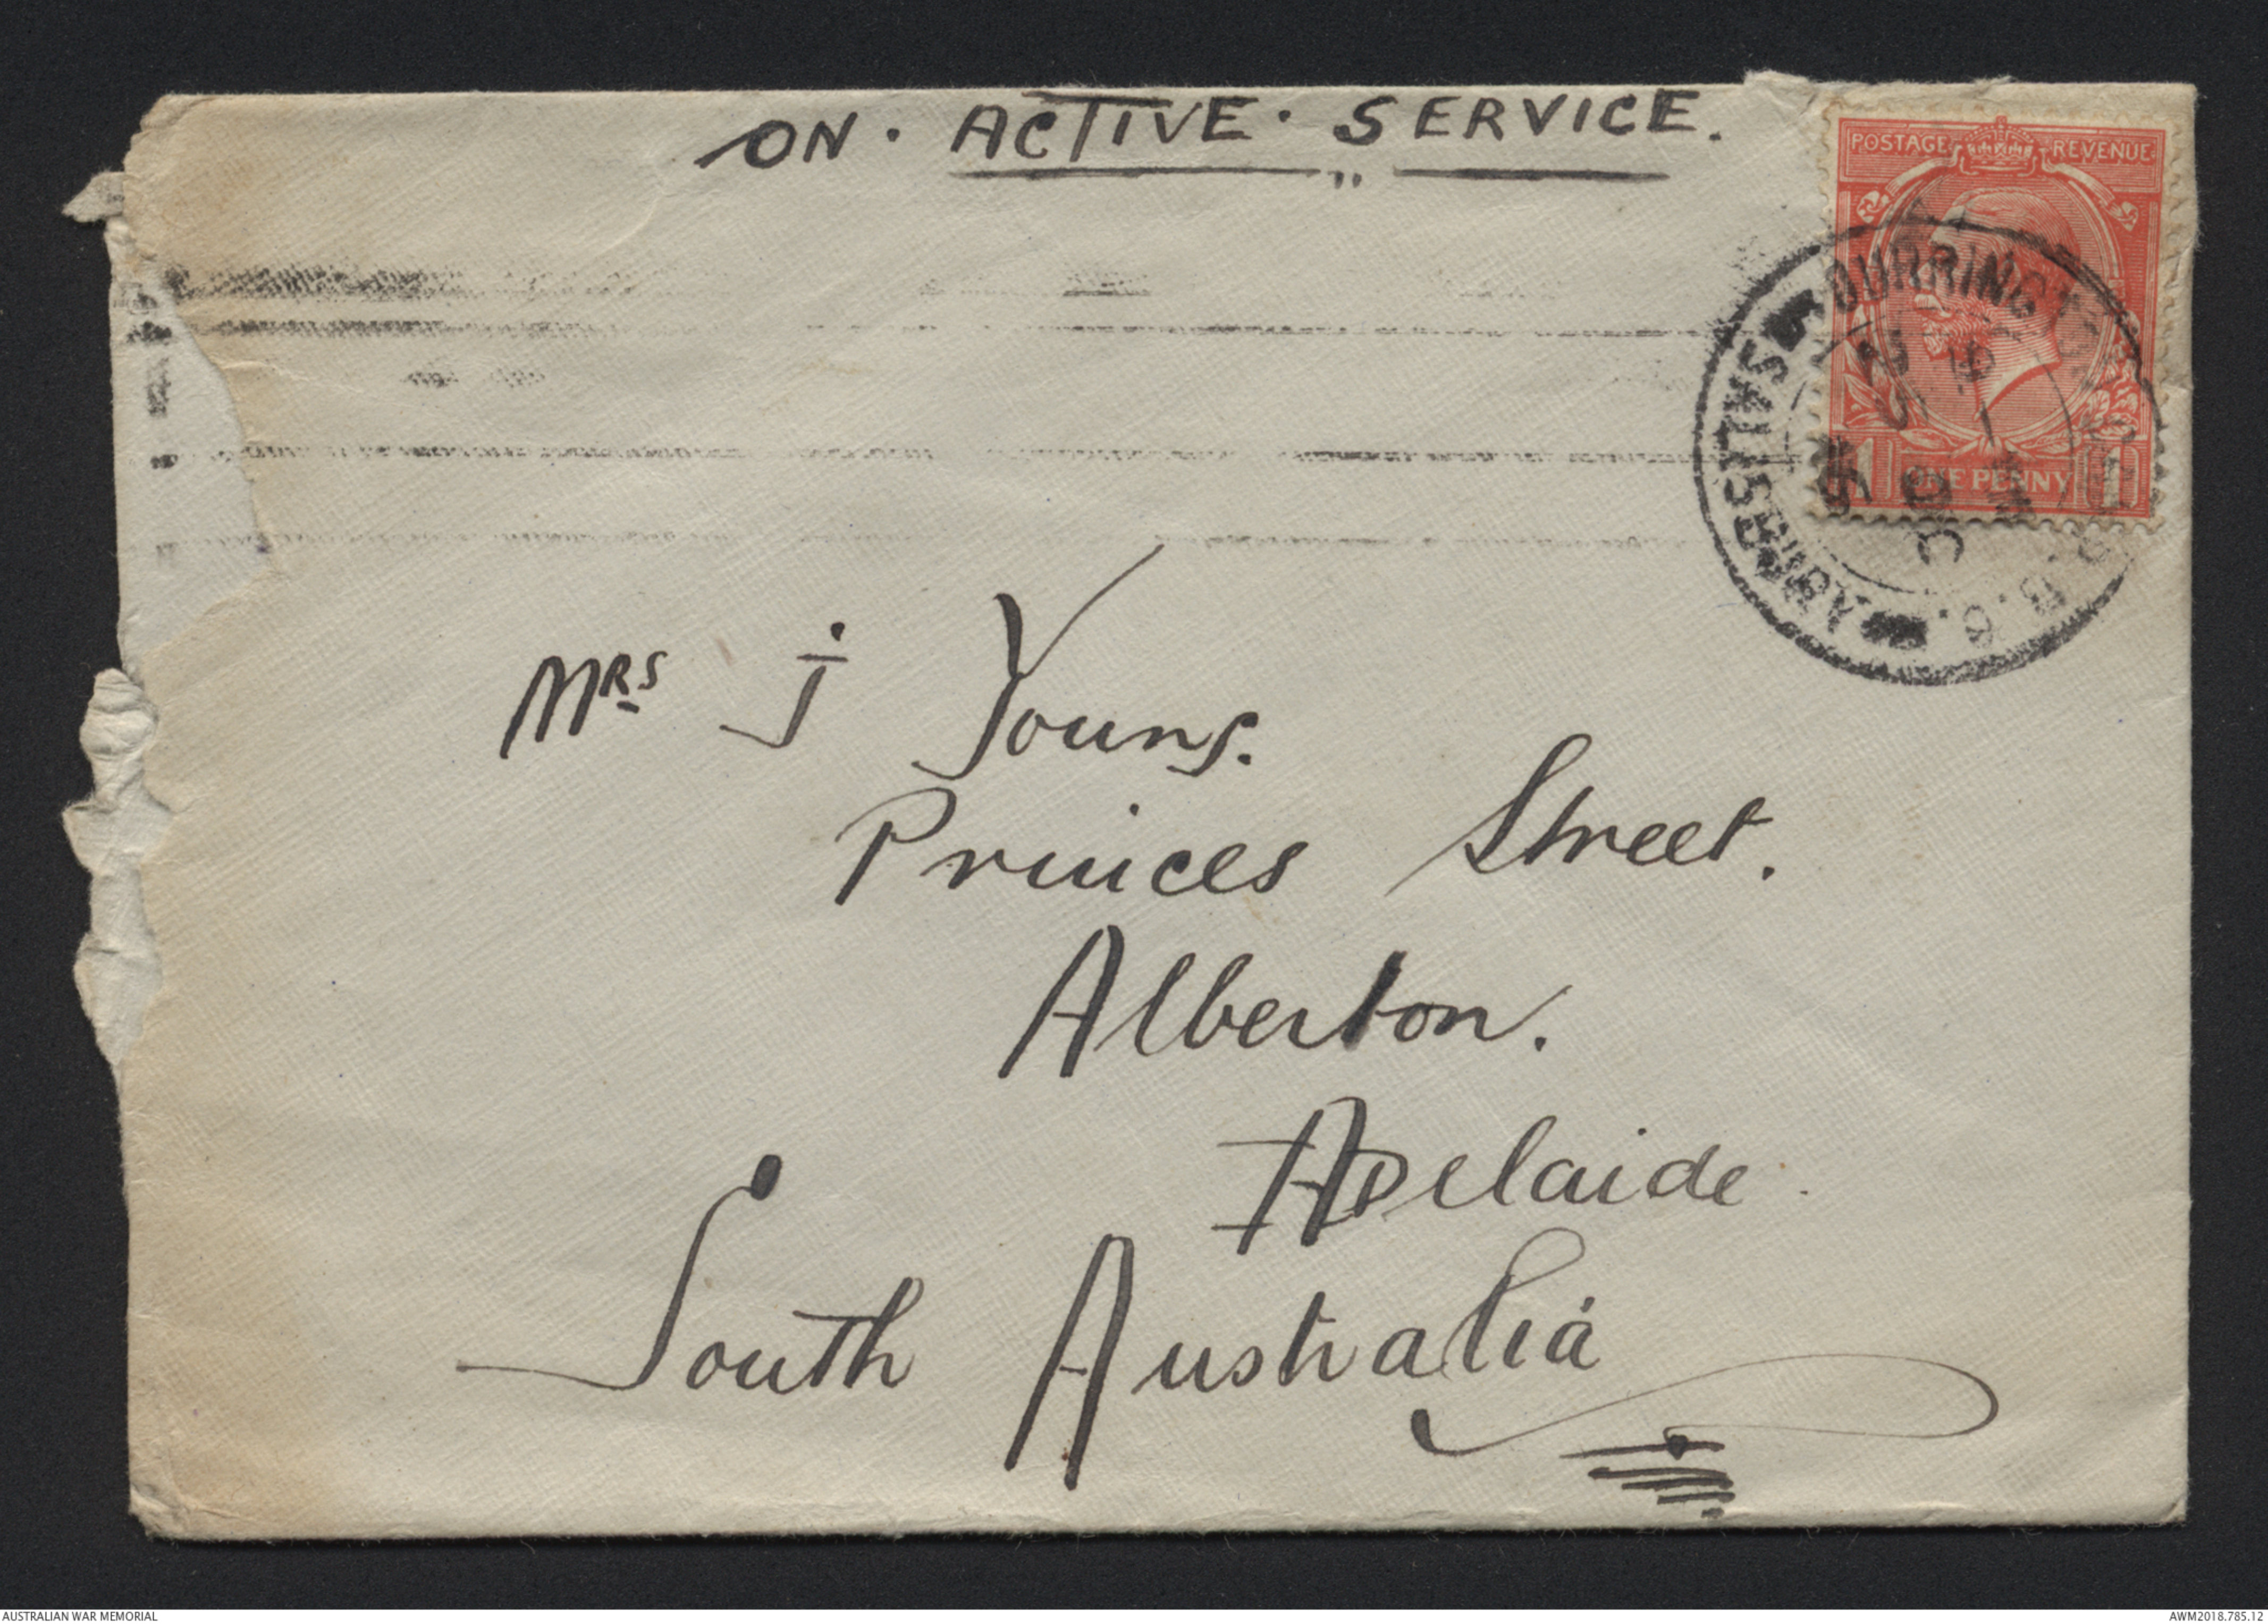 ON. ACTIVE. SERVICE.
POSTAGE REVENUE
ONE PENNY
DURRINGTON
SALISBURY
DC
Mrs J Young.
Princes Street.
Alberton.
Adelaide.
South Australia
AUSTRALIAN WAR MEMORIAL
AWM2018.785.12